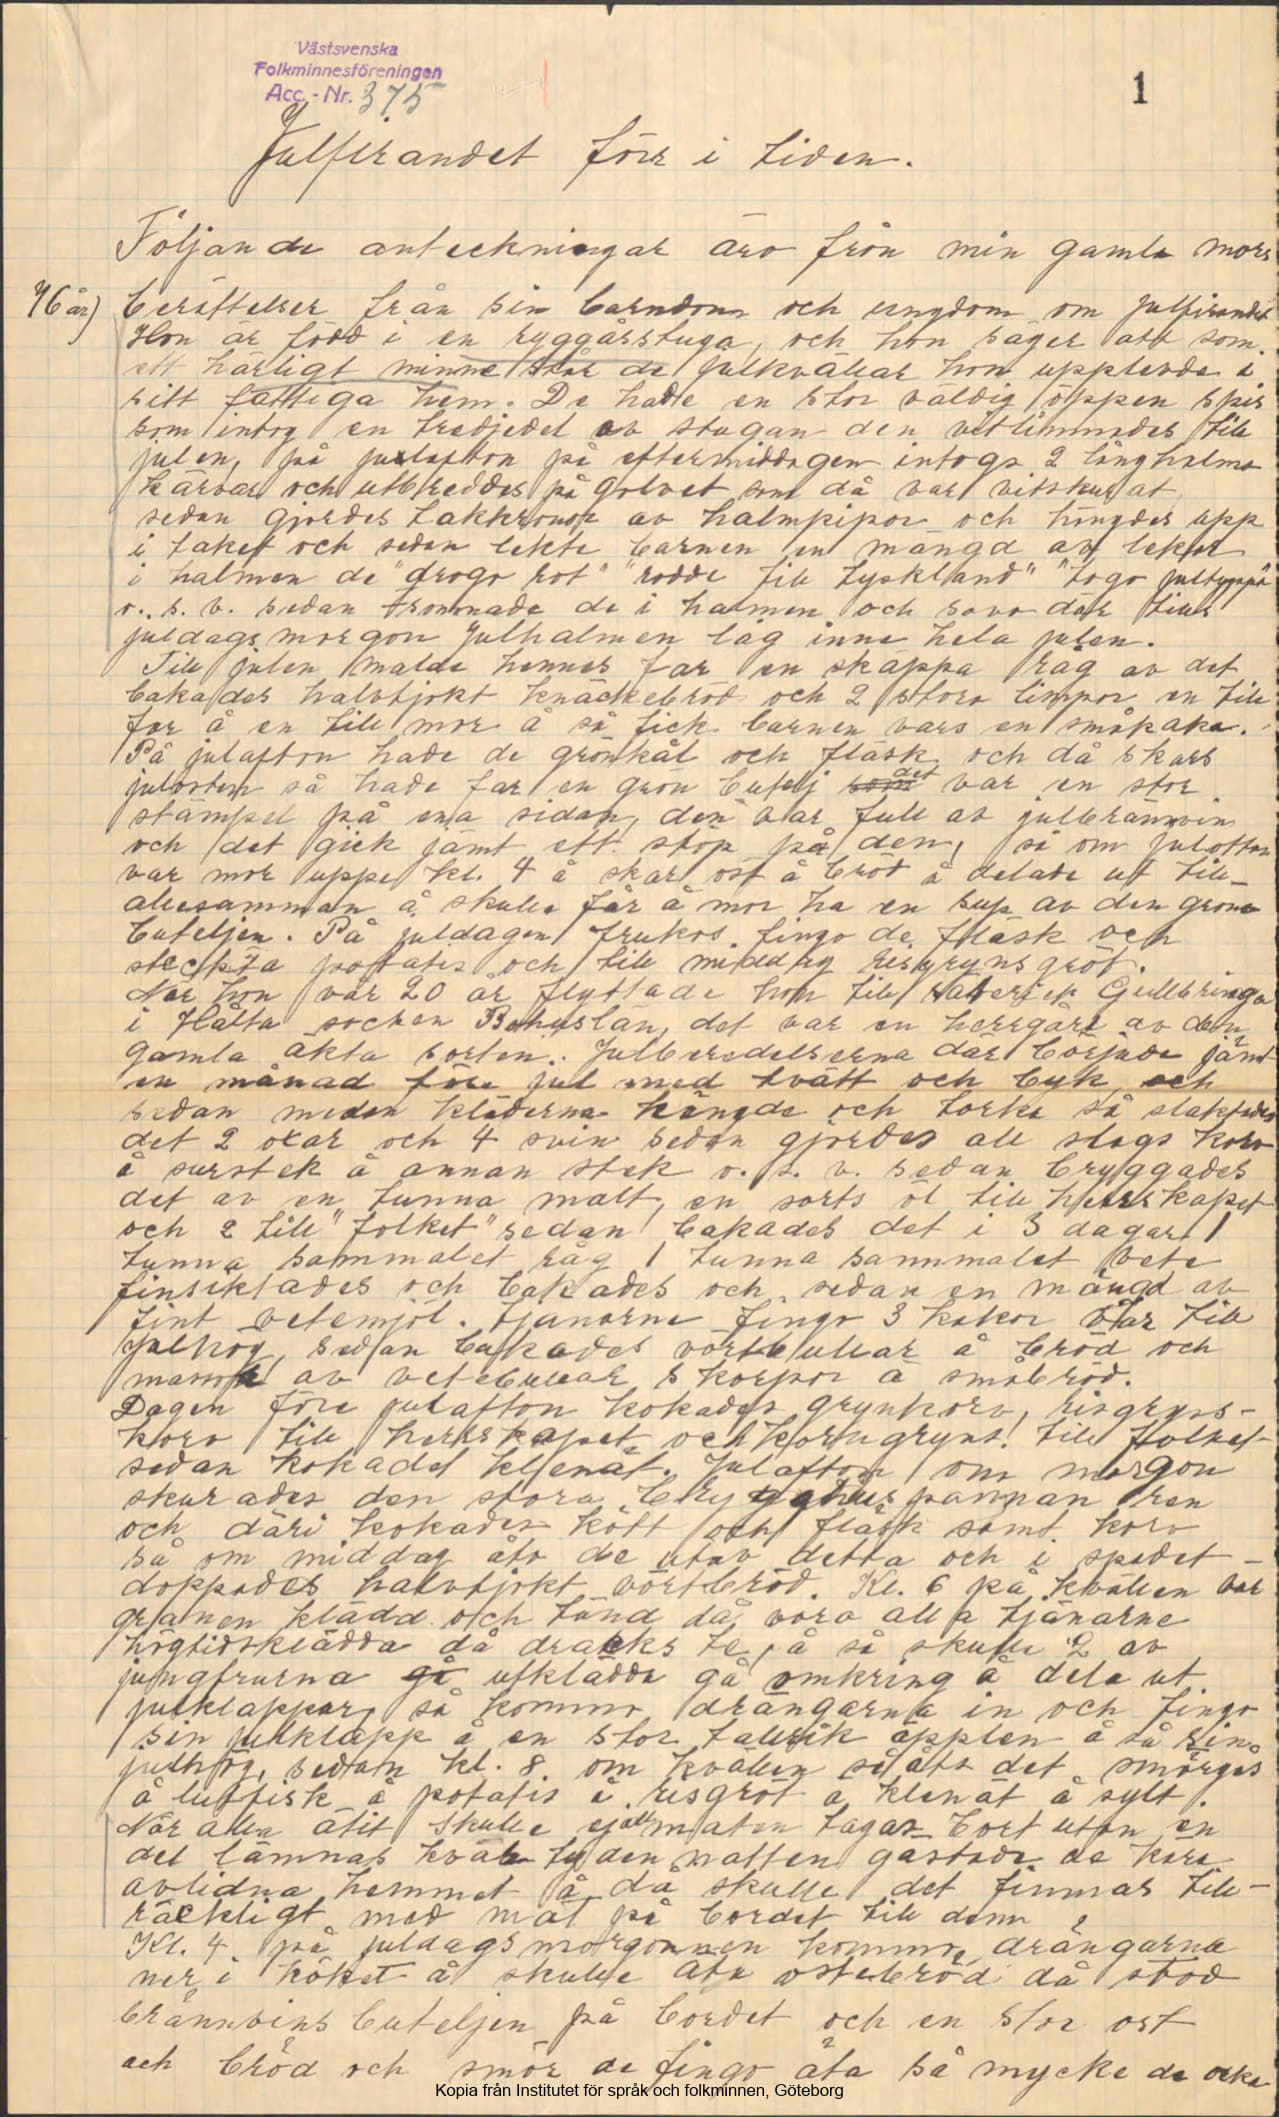 Västsvenska
Folkminnesföreningen
Acc.-Nr. 375
1
Julfirandet förr i tiden.
Följande anteckningar äro från min gamla mors
76 år) berättelser från sin barndom och ungdom om julfirandet
Hon är född i en ryggåsstuga, och hon säger att som
ett härligt minne står de julkvällar hon upplevde i
sitt fattiga hem. De hade en stor väldig öppen spis
som intog en tredjedel av stugan den vitlimmades till
julen, på julafton på eftermiddagen intogs 2 långhalms
kärvar och utbreddes på golvet som då var vitskurat
sedan gjordes takkronor av halmpipor och hängdes upp
i taket och sedan lekte barnen en mängd av lekar
i halmen de "drogo rot" "rodde till Tyskland" "togo jultuppa"
o. s. v. sedan somnade de i halmen och sovo där till
juldagsmorgon Julhalmen låg inne hela julen.
Till julen malde hennes far en skäppa råg av det
bakades halvtjokt knäckebröd och 2 stora limpor en till
far å en till mor å så fick barnen vars en småkaka.
På julafton hade de grönkål och fläsk och då skars
julosten så hade far en grön butelj det var en stor
stämpel på ena sidan, den var full av julbrännvin
och det gick jämt ett stop på den, så om julotton
var mor uppe kl. 4 å skar ost å bröd å delade ut till
allesamman å skulle far å mor ha en sup av den gröna
buteljen. På juldagen frukos fingo de fläsk och
steckta potatis och till middag risgrynsgröt.
När hon var 20 år flyttade hon till Gullbringa
i Hålta socken Bohuslän, det var en herrgård av den
gamla äkta sorten. Julberedelserna där började jämt
en månad före jul med tvätt och byk, och
sedan medan kläderna hängde och torka så slaktades
det 2 oxar och 4 svin sedan gjordes all slags korv
å surstek å annan stek o. s. v. sedan bryggades
det av en tunna malt, en sorts öl till herrskapet
och 2 till "folket" sedan bakades det i 3 dagar 1
tunna sammalet råg 1 tunna sammalet vete
finsiktades och bakades och sedan en mängd av
fint vetemjöl. Tjänarne fingo 3 kakor var till
julhög, sedan bakades vörtbullar å bröd och
massor av vetebullar skorpor å småbröd.
Dagen före julafton kokades grynkorv, risgryns-
korv till herrskapet och korngryns. till folket
sedan kokades klenät. Julafton om morgon
skurades den stora brygghuspannan ren
och däri kokades kött och fläsk samt korv
så om middag åto de utav detta och i spadet
doppades halvtjokt vörtbröd. Kl. 6 på kvällen var
granen klädd och tänd då voro alla tjänarne
högtidsklädda då dracks te, å så skulle 2 av
jungfrurna gå utklädda gå omkring å dela ut
julklappar, så kommo drängarna in och fingo
sin julklapp å en stor tallrik äpplen å så sin
julhög, sedan kl. 8 om kvällen så åts det smörgås
å lutfisk å potatis å risgröt å klenät å sylt.
När alla ätit skulle ej all maten tagas bort utan en
del lämnas kvar ty den natten gästade de kära
avlidna hemmet å då skulle det finnas till-
räckligt med mat på bordet till dem
Kl. 4 på juldagsmorgonen kommo drängarna
ner i köket å skulle äta ostabröd då stod
brännvins buteljen på bordet och en stor ost
och bröd och smör de fingo äta så mycke de orka
Kopia från Institutet för språk och folkminnen, Göteborg